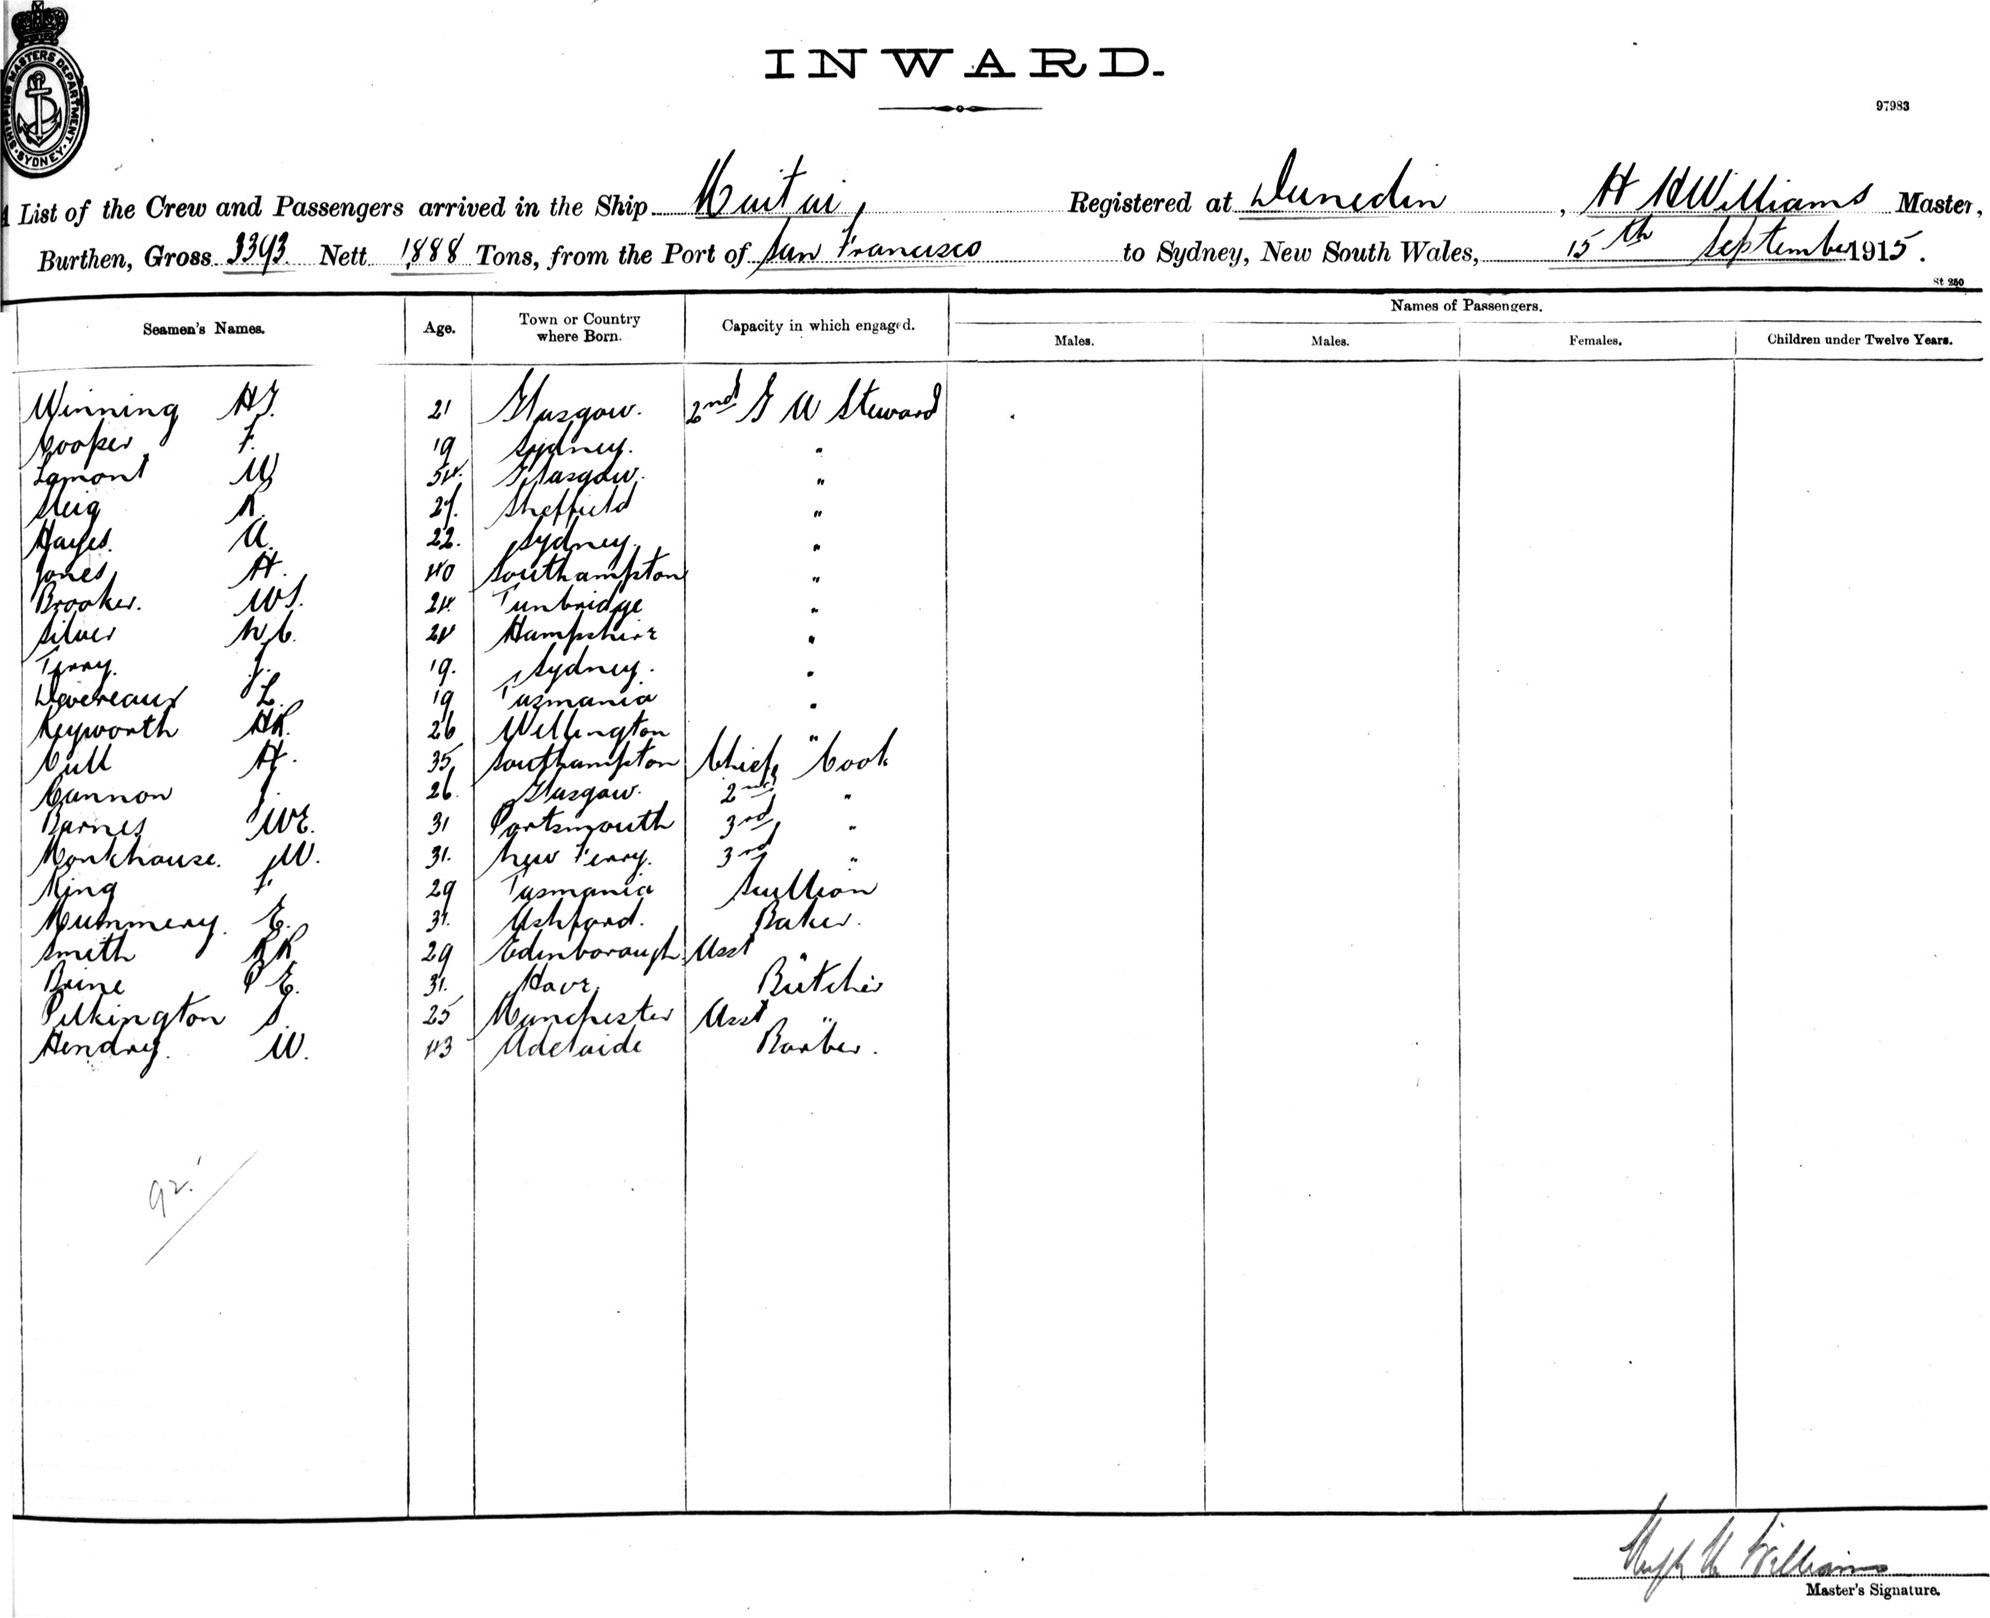 SHIPPING MASTERS DEPARTMENT · SYDNEY ·
INWARD.
97983
List of the Crew and Passengers arrived in the Ship Maitai, Registered at Dunedin, H H Williams Master,
Burthen, Gross 3393 Nett 1,888 Tons, from the Port of San Francisco to Sydney, New South Wales, 15th September 1915.
St 250
Names of Passengers.
Seamen's Names. Age. Town or Country where Born. Capacity in which engaged. Males. Males. Females. Children under Twelve Years.
Winning 21 Glasgow. 2nd Steward
Cooper F. 19 Sydney. "
Lamont W 54. Glasgow. "
R. Sheffield "
Hayes. A. 22. Sydney. "
Jones H. 40 Southampton "
Brooker. WS. 24. Tunbridge "
Silver W.C. 24 Hampshire "
Terry. J. 19. Sydney. "
Devereaux L. 19 Tasmania "
Keyworth HR. 26 Wellington "
Cull H. 35 Southampton Chief Cook
Cannon J. 26. Glasgow. 2nd "
Barnes WE. 31 Portsmouth 3rd "
Monkhouse. W. 31. New Ferry. 3rd "
King F. 29 Tasmania Scullion
Mummery. E. 31. Ashford. Baker.
Smith RR 29 Edenborough. Asst "
Brine P E. 31. Havre Butcher
Pilkington S. 25 Manchester Asst "
Hendry. W. 43 Adelaide Barber.
92.
Hugh H Williams
Master's Signature.